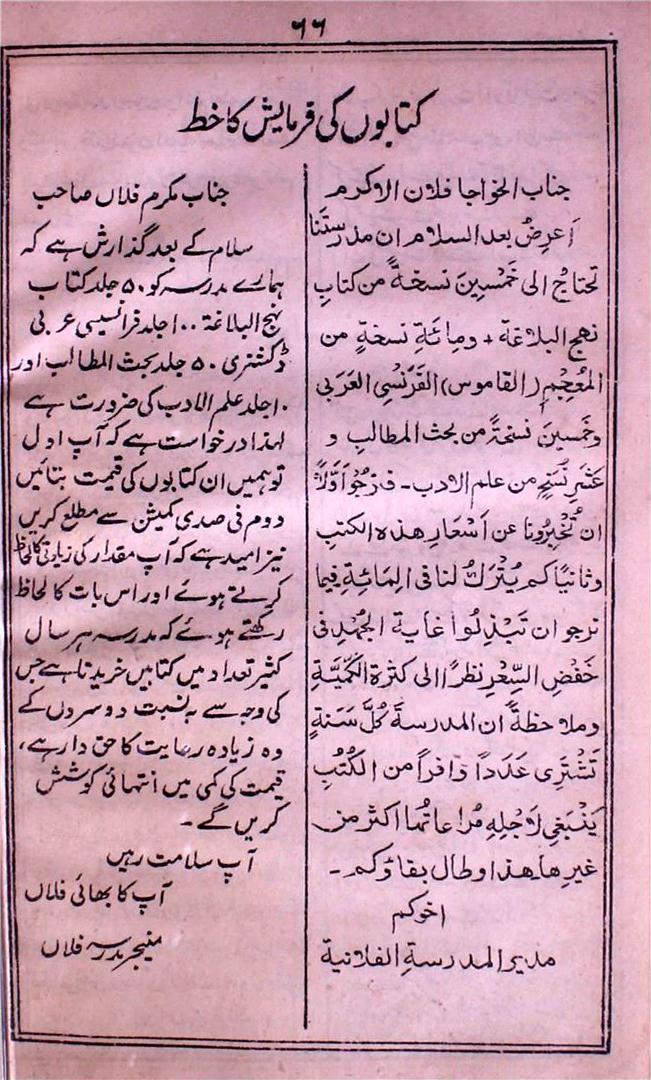 ۶۶
کتابوں کی فرمایش کا خط
جناب الخواجا فلان الاکرم
أعرِضُ بعد السلام ان مدرستَنا
تحتاجُ الی خَمْسِینَ نسخةً من کتابِ
نهج البلاغة + ومِائَةِ نسخةٍ من
المُعْجَمِ (القاموس) الفَرَنْسِی العَرَبی
وخَمْسینَ نسخةً من بحث المطالب و
عَشَرِ نُسَخٍ من علم الادب۔ فنرجُو أوَّلاً
ان تُخْبِرُونا عن أسْعَارِ هذه الکتب
وثانیًا کم یُتْرَكُ لنا فی المِائةِ فیما
نرجو ان تَبْذِلُوا غایة الجُهْدِ فی
خَفْضِ السِّعْرِ نظرًا الی کثرة الکَمِّیَّةِ
وملاحظةً ان المدرسةَ کُلَّ سَنةٍ
تَشْتَرِی عَدَدًا وَافرًا من الکُتُبِ
یَنْبَغِی لِاَجْلِهِ مُراعاتُها اکثر من
غیرِها هذا وطال بقاؤکم۔
اخوکم
مدیر المدرسةِ الفلانیة
جناب مکرم فلاں صاحب
سلام کے بعد گذارش ہے کہ
ہمارے مدرسہ کو ۵۰ جلد کتاب
نہج البلاغة ۱۰۰ جلد فرانسیسی عربی
ڈکشنری ۵۰ جلد بحث المطالب اور
۱۰ جلد علم الادب کی ضرورت ہے
لہذا درخواست ہے کہ آپ اول
تو ہمیں ان کتابوں کی قیمت بتائیں
دوم فی صدی کمیشن سے مطلع کریں
نیز امید ہے کہ آپ مقدار کی زیادتی کا لحاظ
کرتے ہوئے اور اس بات کا لحاظ
رکھتے ہوئے کہ مدرسہ ہر سال
کثیر تعداد میں کتابیں خریدتا ہے جس
کی وجہ سے بہ نسبت دوسروں کے
وہ زیادہ رعایت کا حق دار ہے،
قیمت کی کمی میں انتہائی کوشش
کریں گے۔
آپ سلامت رہیں
آپ کا بھائی فلاں
منیجر مدرسہ فلاں